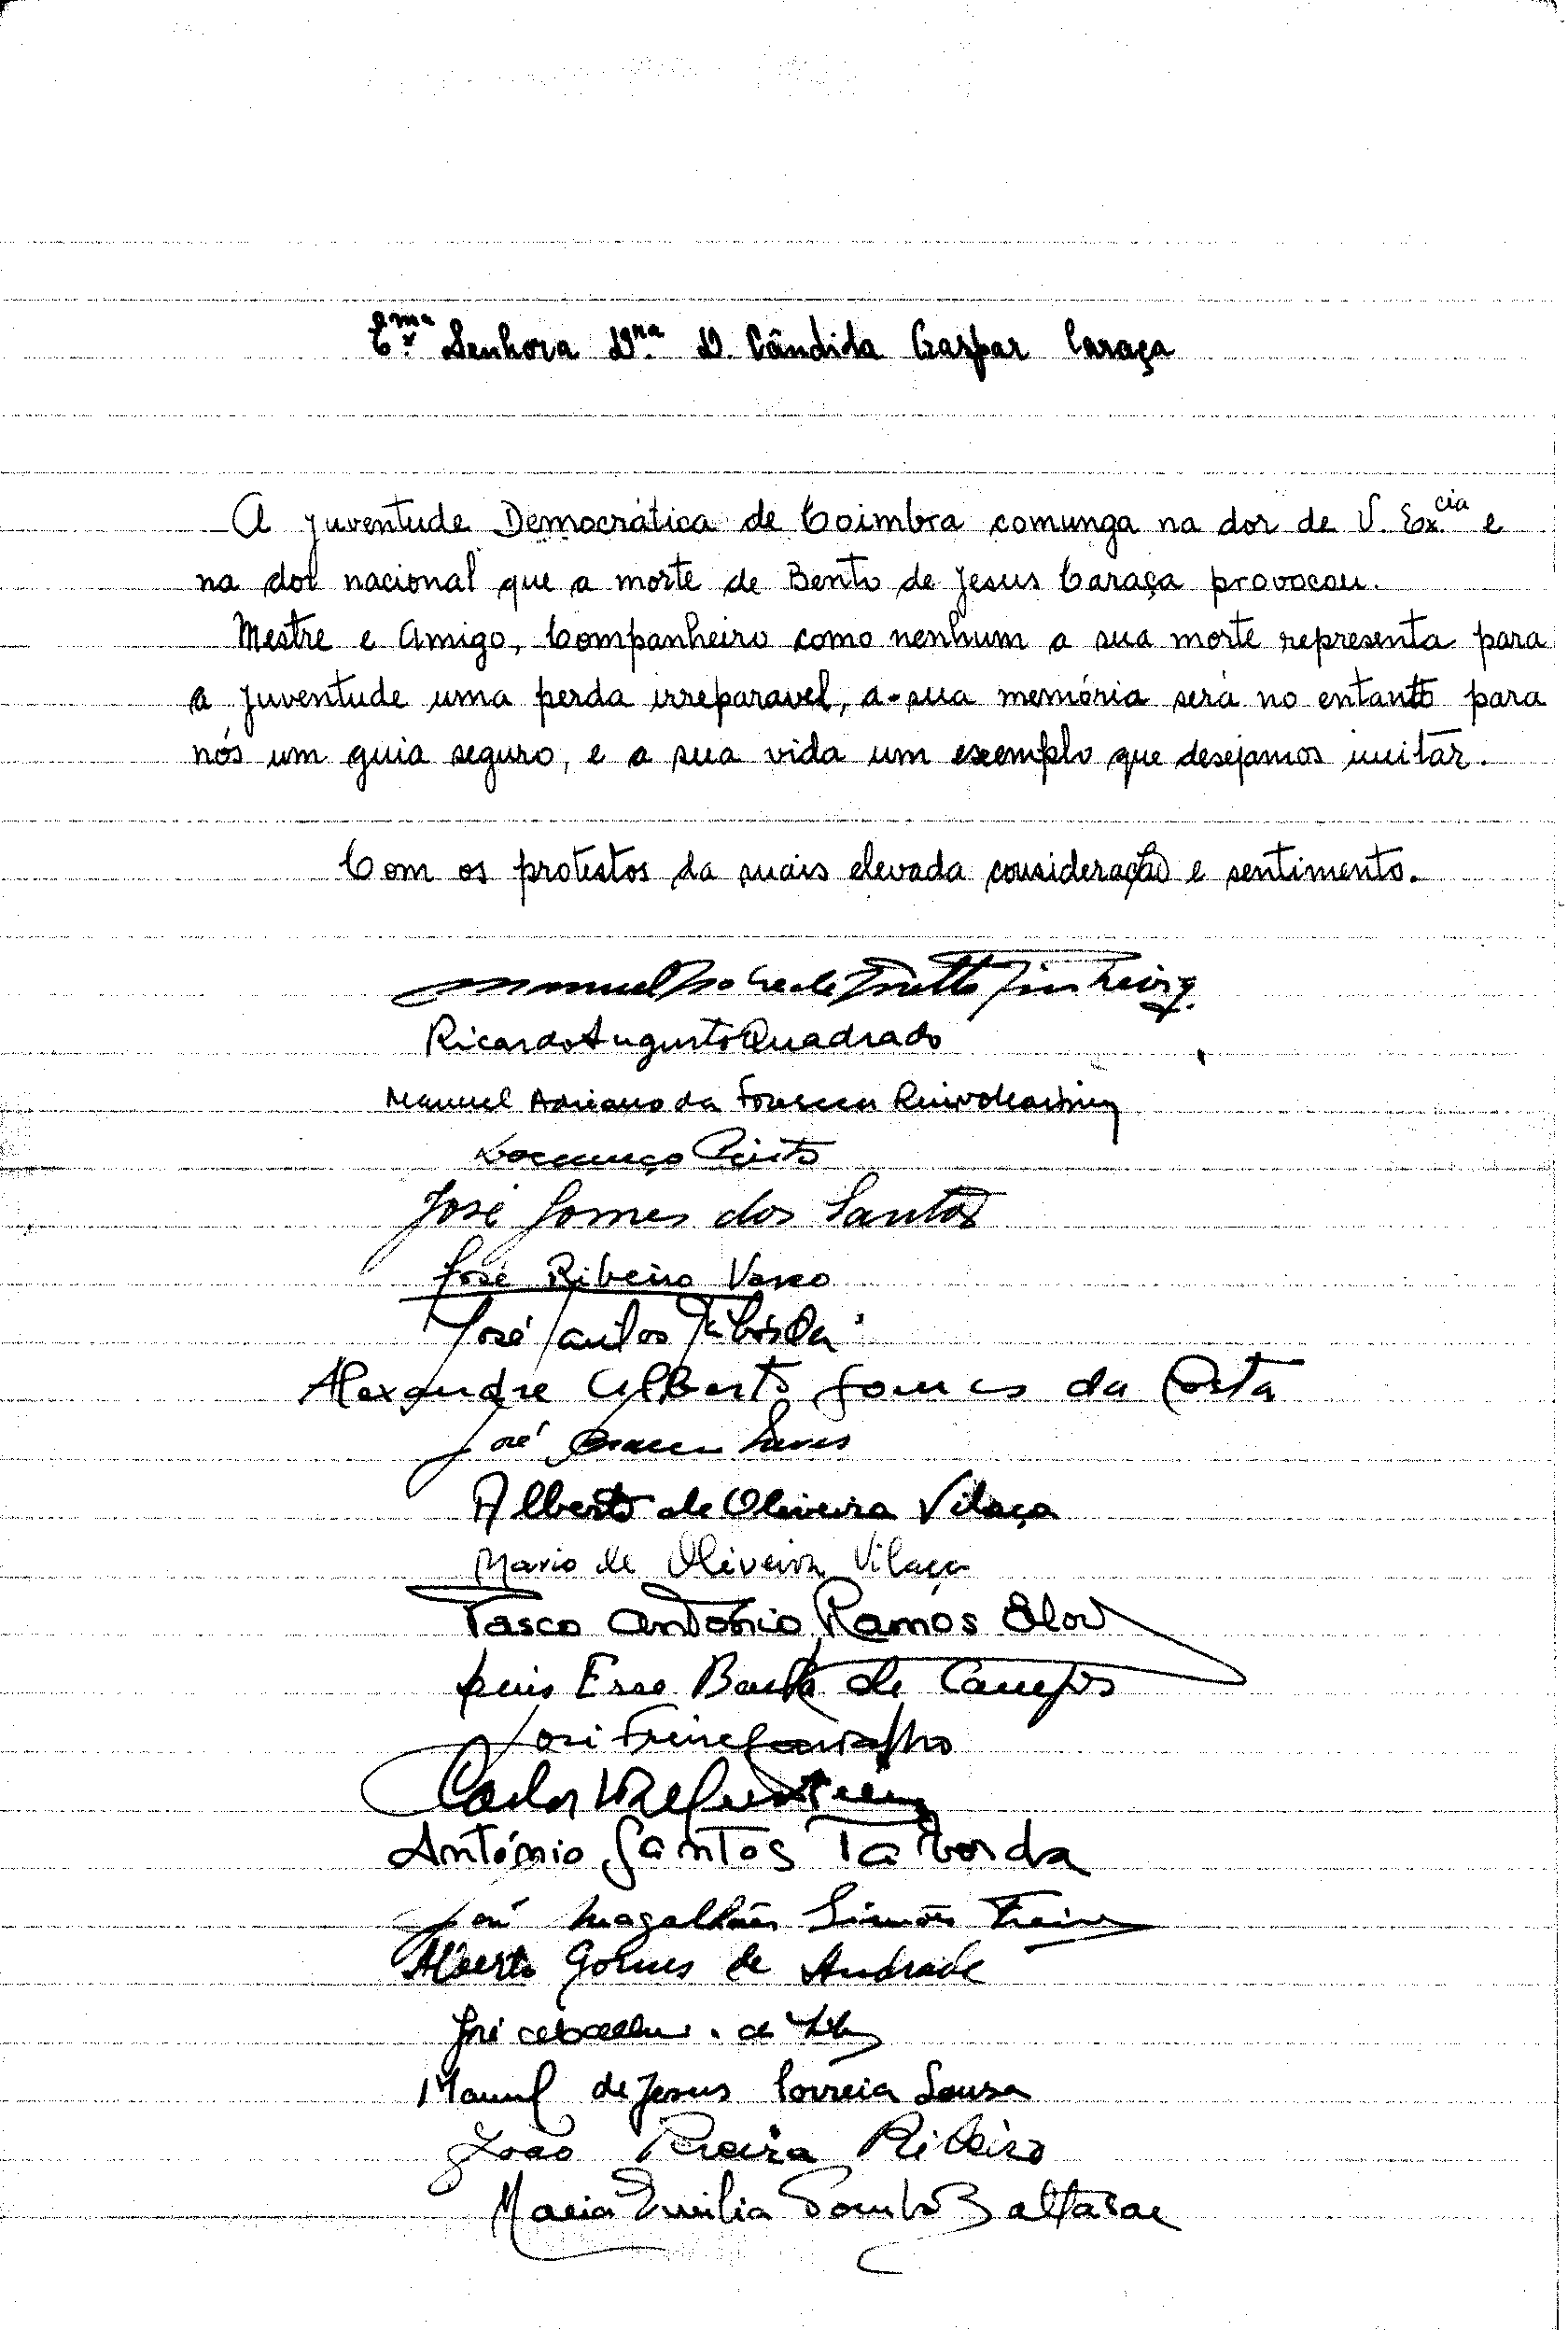 Ex.ma Senhora Dr.na D. Cândida Gaspar Caraça
A juventude Democrática de Coimbra comunga na dor de V. Ex.cia e
na dor nacional que a morte de Bento de Jesus Caraça provocou.
Mestre e Amigo, Companheiro como nenhum a sua morte representa para
a juventude uma perda irreparavel, a sua memória será no entanto para
nós um guia seguro, e a sua vida um exemplo que desejamos imitar.
Com os protestos da mais elevada consideração e sentimento.
Manuel
Ricardo Augusto Quadrado
Manuel Adriano da Fonseca
Lourenço
José Gomes dos Santos
José Ribeiro Vasco
José Santos Taborda
Alexandre Alberto Gomes da Costa
José
Alberto de Oliveira Vilaça
Mario de Oliveira Vilaça
Vasco António Ramos
Luis de Campos
José Freire
Carlos
António Santos Taborda
José Magalhães Simões Freire
Alberto Gomes de Andrade
José
Manuel de Jesus Correia Sousa
João Pereira Ribeiro
Maria Emilia Baltasar